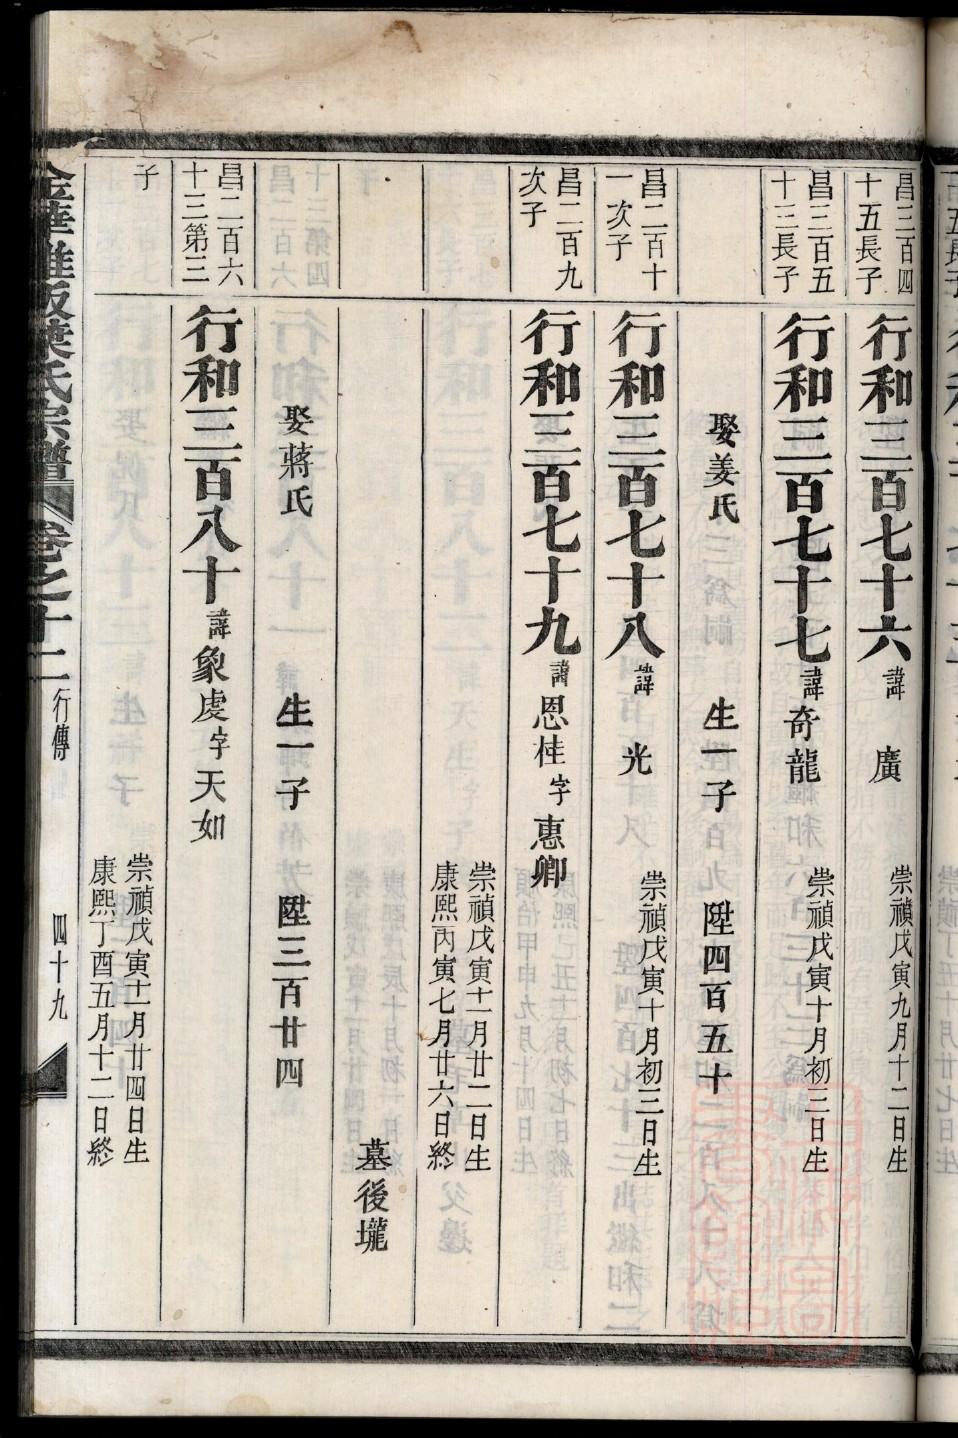 昌三百四
十五長子
行和三百七十六諱 廣
崇禎戊寅九月十二日生
昌三百五
十三長子
行和三百七十七諱奇龍
崇禎戊寅十月初三日生
娶姜氏 生一子百九陞四百五十
昌二百十
一次子
行和三百七十八諱 光
崇禎戊寅十月初三日生
昌二百九
次子
行和三百七十九諱恩桂字惠卿
崇禎戊寅十一月廿二日生
康熙丙寅七月廿六日終
墓後壠
娶蔣氏 生一子 陞三百廿四
昌二百六
十三第三
子
行和三百八十諱象虔字天如
崇禎戊寅十一月廿四日生
康熙丁酉五月十二日終
氏宗譜 卷之十二 行傳 四十九